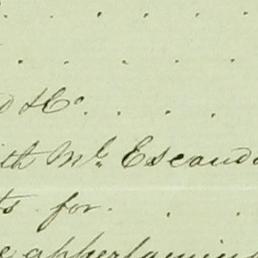 d & Co. . . . .
ith Mr. Escand
ts for. . .
e appertaining